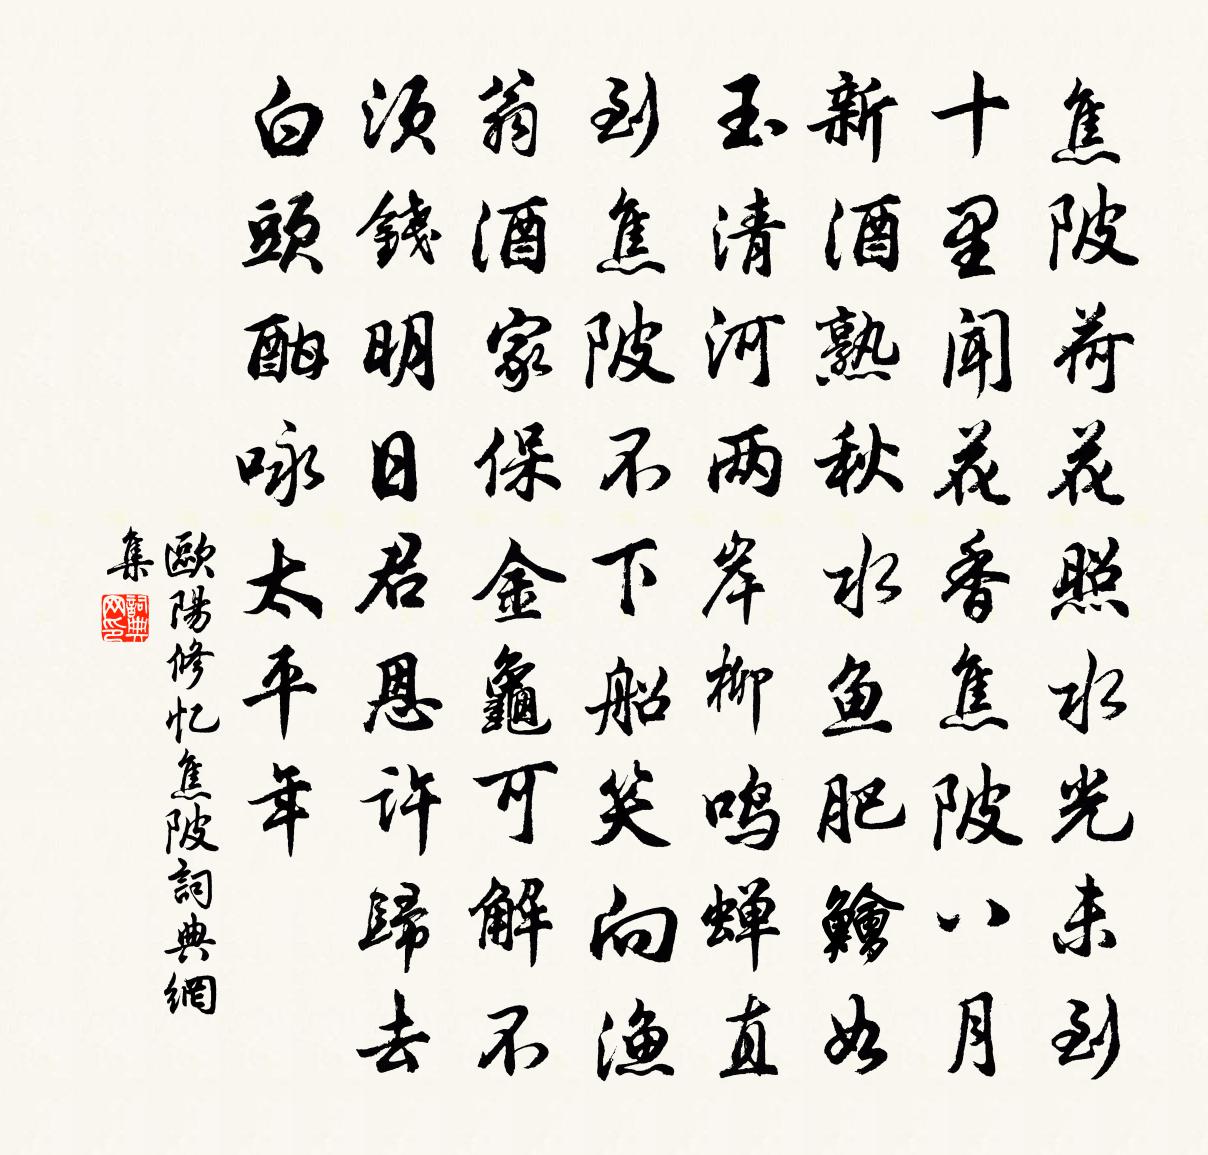 焦陂荷花照水光未到
十里闻花香焦陂八月
新酒熟秋水鱼肥鱠如
玉清河两岸柳鸣蝉直
到焦陂不下船笑向渔
翁酒家保金龜可解不
须錢明日君恩许歸去
白頭酣咏太平年
歐陽修忆焦陂詞典網
集
詞典
网印